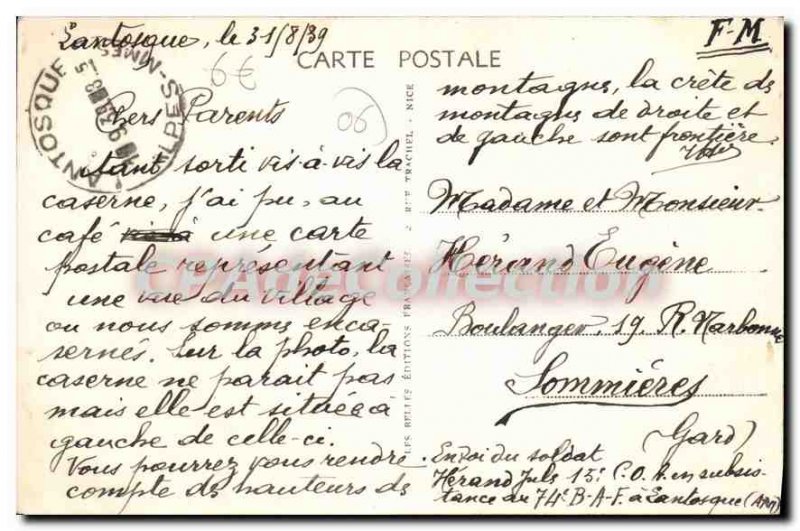 Lantosque, le 31/8/39
6€
CARTE POSTALE
F-M
06
Chers Parents
Etant sorti vis-à-vis la
caserne, j'ai pu, au
café une carte
postale représentant
une vue du village
ou nous somme enca
sernés. Sur la photo, la
caserne ne parait pas
mais elle est située à
gauche de celle-ci.
Vous pourrez vous rendre
compte des hauteurs de
montagne, la crête de
montagne de droite et
de gauche sont frontière.
Madame et Monsieur
Hérand Eugène
Boulanger, 19. R. Narbonne
Sommiéres
(Gard)
Envoi du soldat
Hérand Juls 15e C.O.A. en subsis-
tance au 74e B-A-F. à Lantosque (AM)
LES BELLES ÉDITIONS FRANÇAISES RUE TRACHEL, NICE
LANTOSQUE
CPAgeCollection